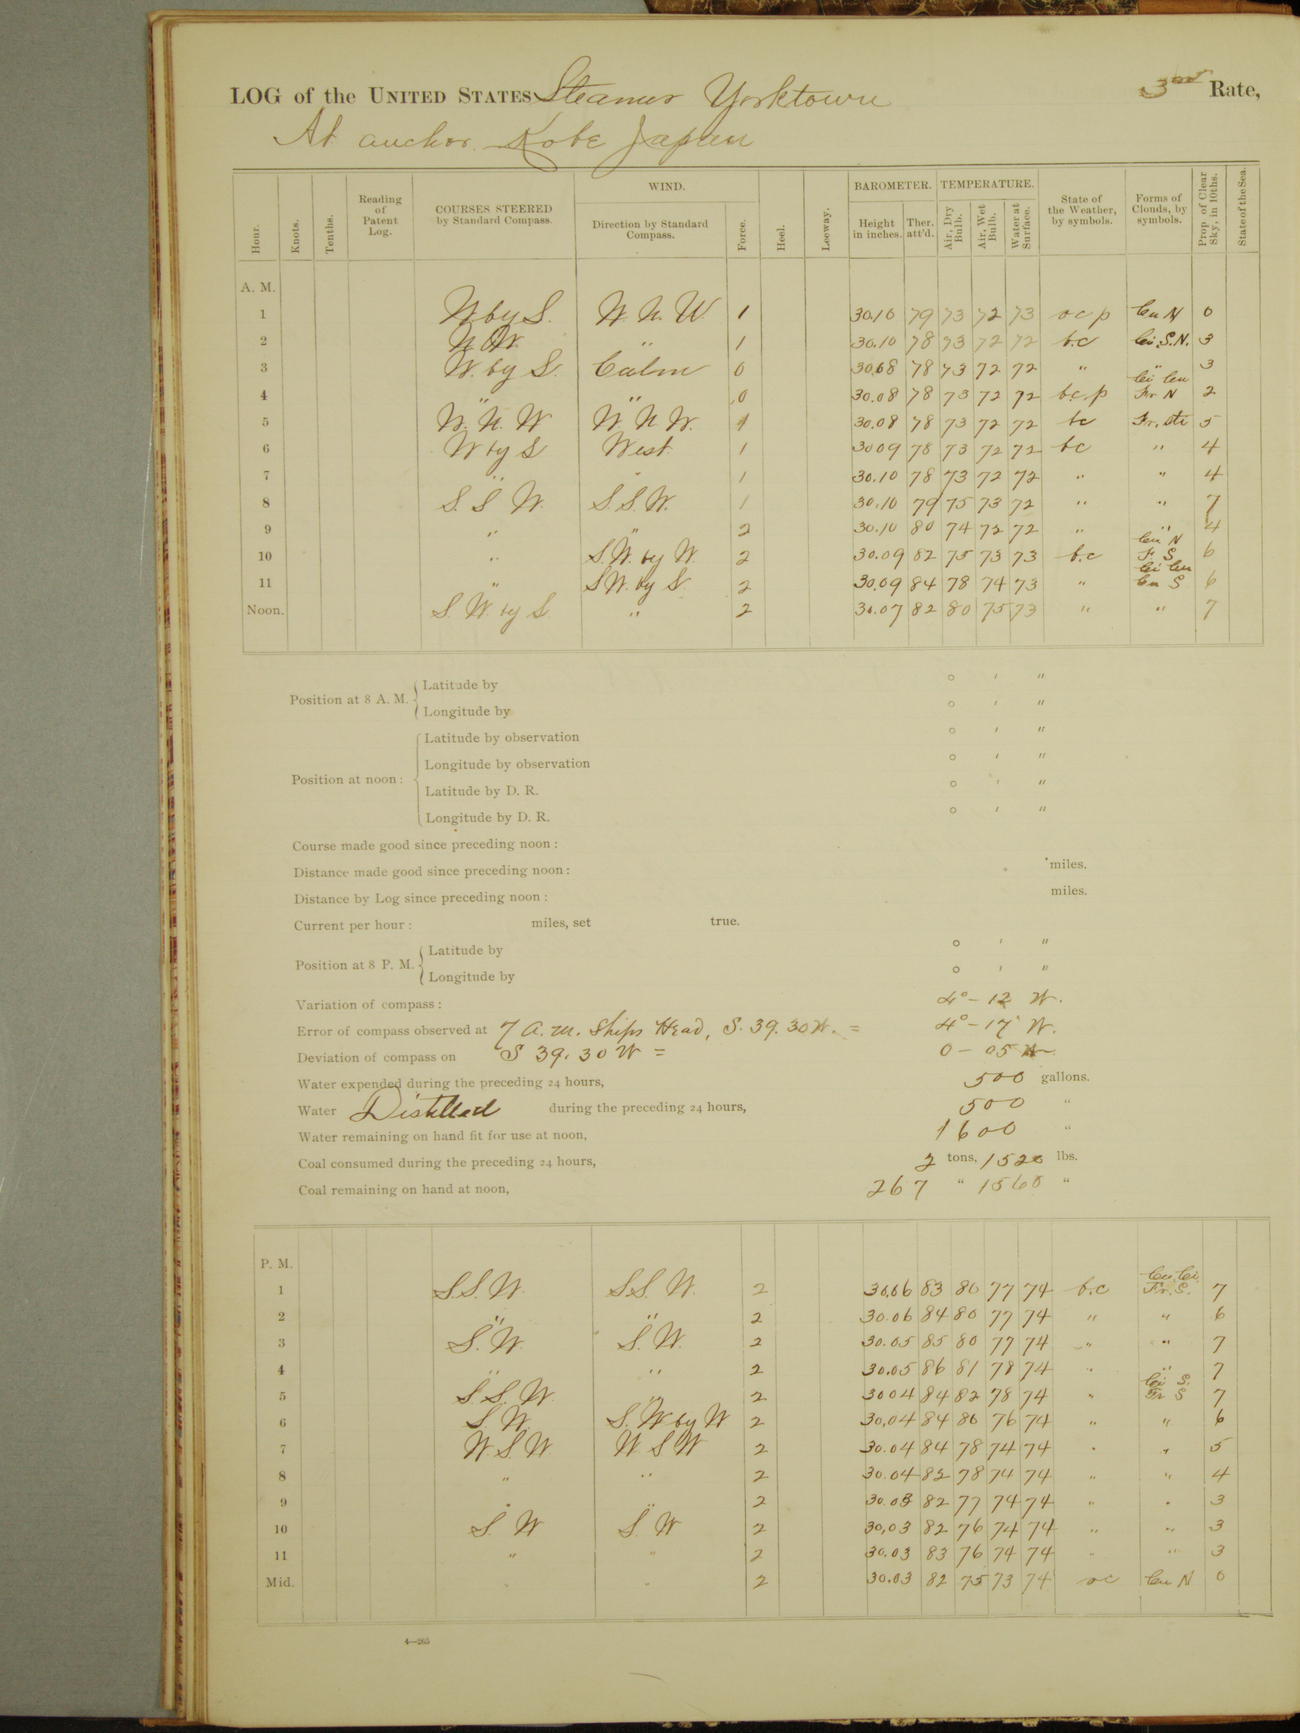 LOG of the UNITED STATES Steamer Yorktown 3rd Rate,
At anchor Kobe Japan
Hour. Knots. Tenths. Reading of Patent Log. COURSES STEERED by Standard Compass. WIND. Direction by Standard Compass. Force. Heel. Leeway. BAROMETER. Height in inches. Ther. att'd. TEMPERATURE. Air, Dry Bulb. Air, Wet Bulb. Water at Surface. State of the Weather, by symbols. Forms of Clouds, by symbols. Prop. of Clear Sky, in 10ths. State of the Sea.
A. M.
1 W. by S. W. N. W. 1 30.10 79 73 72 73 o c p Cu N 0
2 N W. " 1 30.10 78 73 72 72 b.c Ci.S.N. 3
3 W. by S. Calm 0 30.08 78 73 72 72 " " 3
4 " " 0 30.08 78 73 72 72 b.c.p Ci Cu Fr N 2
5 W. N. W W. N W. 1 30.08 78 73 72 72 bc 5
6 W by S West 1 30 09 78 73 72 72 bc " 4
7 " " 1 30.10 78 73 72 72 " " 4
8 S. S W. S S. W. 1 30.10 79 75 73 72 " " 7
9 " " 2 30.10 80 74 72 72 " " 4
10 " S. W. by W. 2 30.09 82 75 73 73 b.c Cu N F. S 6
11 " S W. by S. 2 30.09 84 78 74 73 " Ci Cu Cu S 6
Noon. S. W by S " 2 30.07 82 80 75 73 " " 7
Position at 8 A. M. Latitude by ° ′ ″
Longitude by ° ′ ″
Position at noon: Latitude by observation ° ′ ″
Longitude by observation ° ′ ″
Latitude by D. R. ° ′ ″
Longitude by D. R. ° ′ ″
Course made good since preceding noon:
Distance made good since preceding noon: miles.
Distance by Log since preceding noon: miles.
Current per hour: miles, set true.
Position at 8 P. M. Latitude by ° ′ ″
Longitude by ° ′ ″
Variation of compass: 4° - 12 W.
Error of compass observed at 7 a.m. Ships Head, S. 39.30 W. = 4° - 17' W.
Deviation of compass on S 39.30 W = 0 - 05 W
Water expended during the preceding 24 hours, 500 gallons.
Water Distilled during the preceding 24 hours, 500 "
Water remaining on hand fit for use at noon, 1600 "
Coal consumed during the preceding 24 hours, 2 tons, 1520 lbs.
Coal remaining on hand at noon, 267 " 1560 "
P. M.
1 S.S. W. S.S. W. 2 30.06 83 80 77 74 b.c Cu.Ci. Fr. S. 7
2 " " 2 30.06 84 80 77 74 " " 6
3 S. W. S. W. 2 30.05 85 80 77 74 " " 7
4 " " 2 30.05 86 81 78 74 " " 7
5 S. S. W. " 2 30 04 84 82 78 74 " Ci S. Fr S 7
6 S. W. S. W by W 2 30.04 84 80 76 74 " " 6
7 W S. W W S W 2 30.04 84 78 74 74 " " 5
8 " " 2 30.04 82 78 74 74 " " 4
9 " " 2 30.03 82 77 74 74 " " 3
10 S. W S. W 2 30,03 82 76 74 74 " " 3
11 " " 2 30.03 83 76 74 74 " " 3
Mid. " " 2 30.03 82 75 73 74 oc Cu N 0
4—265